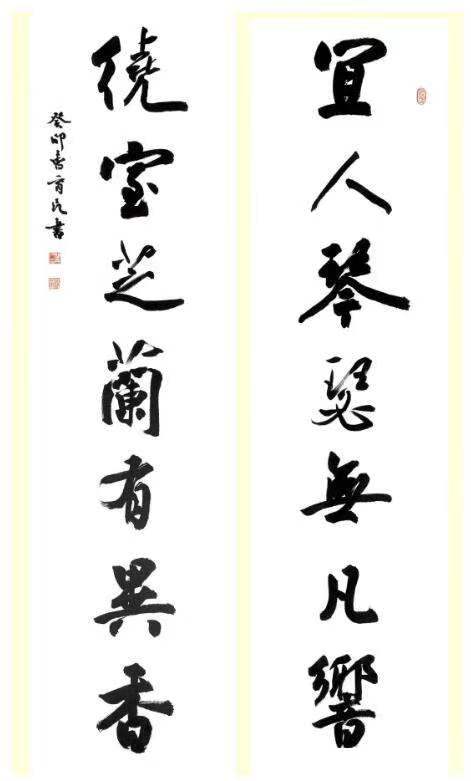 宜人琴瑟無凡響
繞室芝蘭有異香
癸卯春育凡書